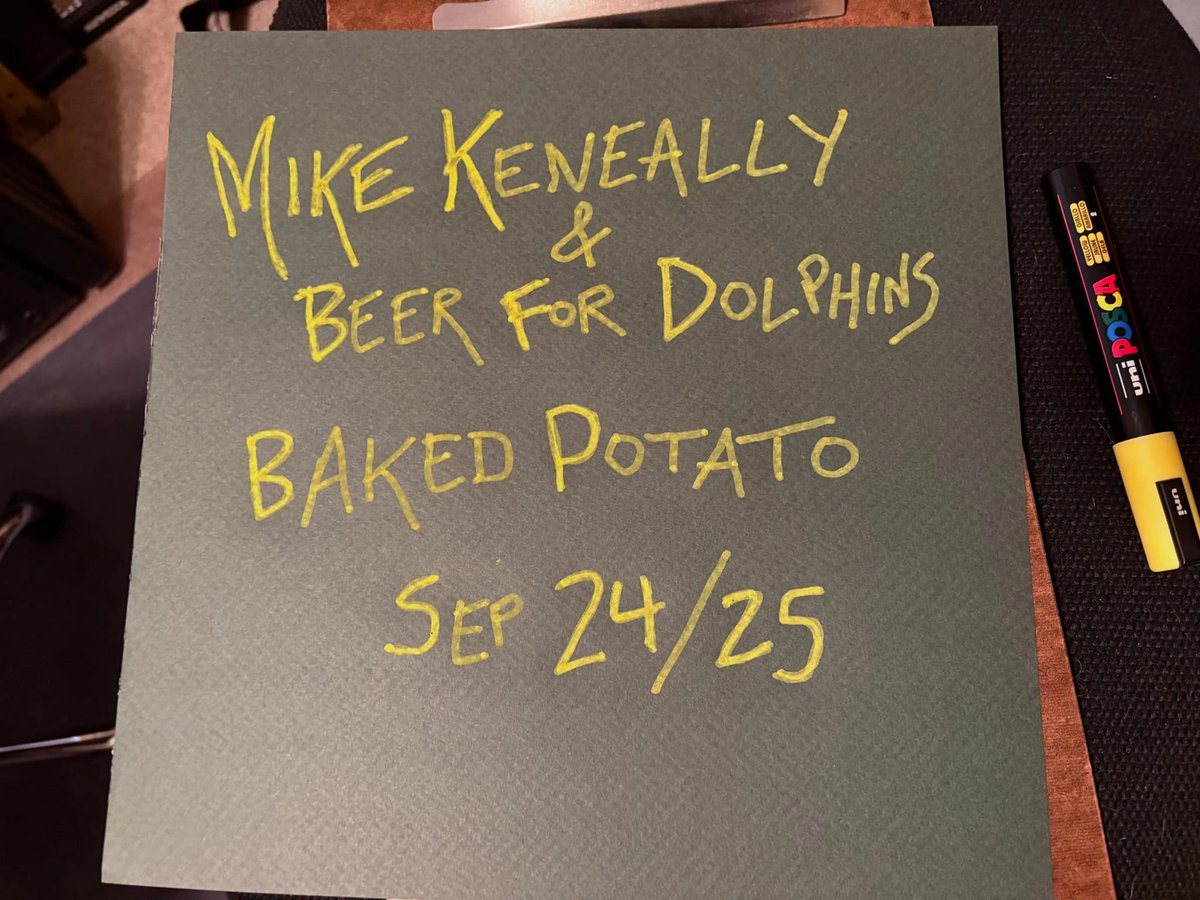 MIKE KENEALLY
&
BEER FOR DOLPHINS
BAKED POTATO
SEP 24/25
uni POSCA
uni